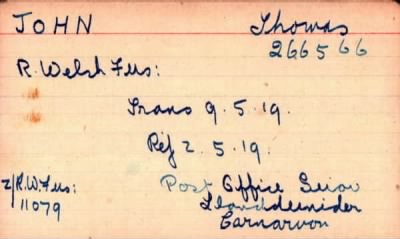 JOHN Thomas
266566
R. Welsh Fus:
Trans 9.5.19.
Rej 2.5.19.
2/R.W.Fus: Post Office Seion
11079 Llanddeinider
Carnarvon